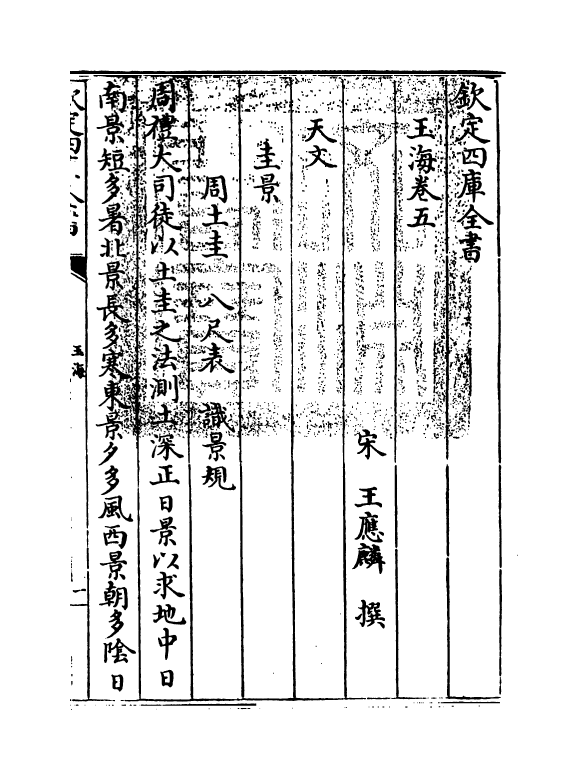 欽定四庫全書
玉海卷五
宋　王應麟　撰
天文
圭景
周土圭　八尺表　識景規
周禮大司徒以土圭之法測土深正日景以求地中日
南景短多暑北景長多寒東景夕多風西景朝多隂日
玉海